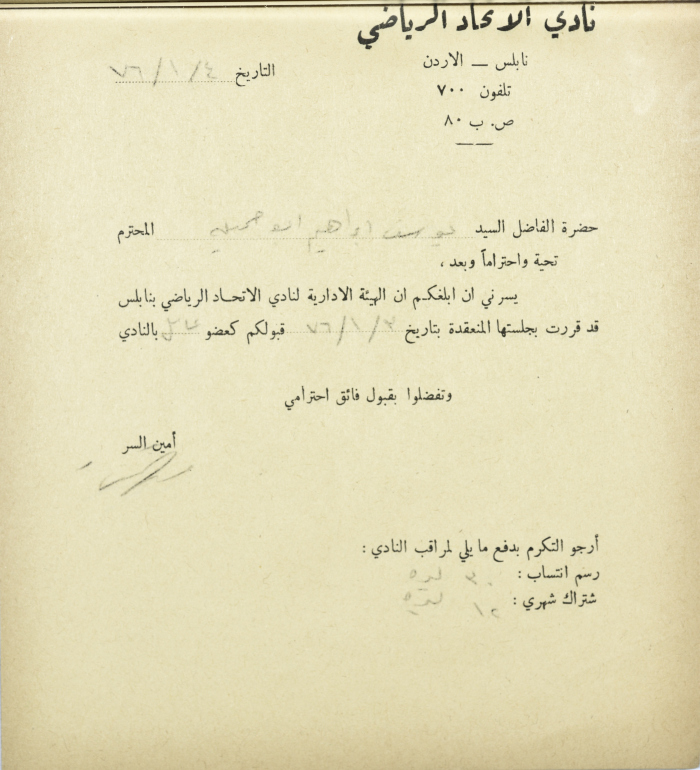 نادي الاتحاد الرياضي
نابلس — الاردن
تلفون ٧٠٠
ص. ب ٨٠
التاريخ ٧٦/١/٤
حضرة الفاضل السيد يوسف ابراهيم ابو المحترم
تحية واحتراماً وبعد ،
يسرني ان ابلغكم ان الهيئة الادارية لنادي الاتحاد الرياضي بنابلس
قد قررت بجلستها المنعقدة بتاريخ ٧٦/١/٣ قبولكم كعضو عامل بالنادي
وتفضلوا بقبول فائق احترامي
أمين السر
أرجو التكرم بدفع ما يلي لمراقب النادي :
رسم انتساب : ٣٠ ليره
شتراك شهري : ١٢ ليره